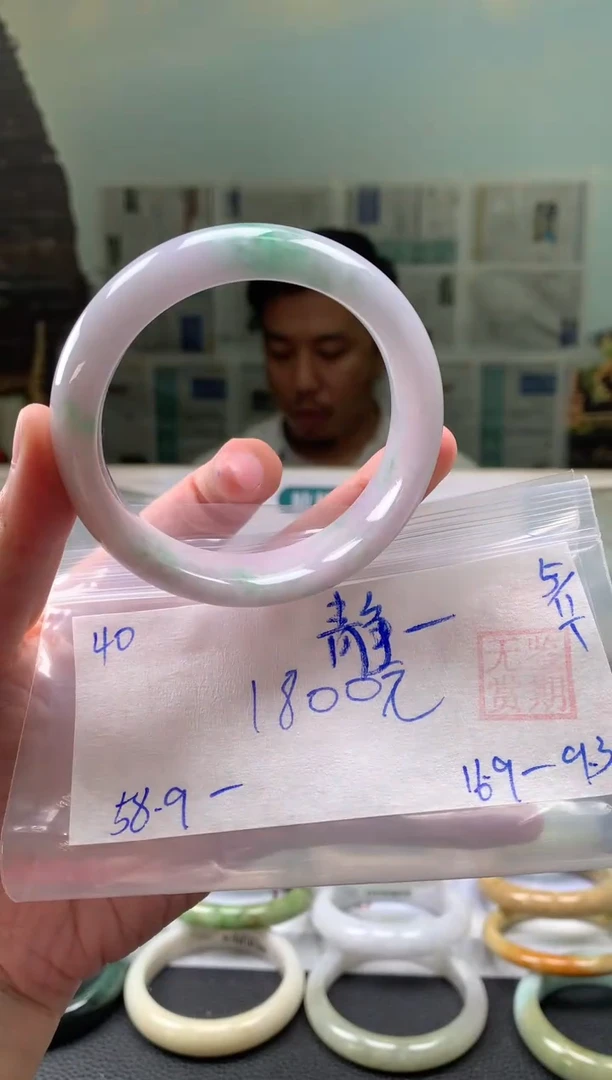 40
静一
5/11下
1800元
无鉴
赏期
58.9-
16.9-9.3